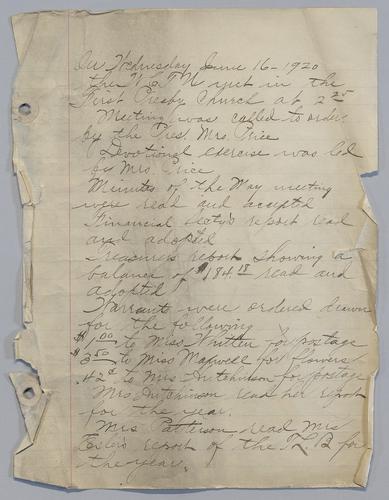 On Wednesday June 16-1920
the W.C.T.U met in the
First Presby Church at 2 25
Meeting was called to order
by the Pres. Mrs. Price
Devotional exercise was led
by Mrs Price
Minutes of the May meeting
were read and acceptd
Financial Sect'y's report read
and adopted
Treasurers report showing a
balance of $184.18 read and
adopted
Warrants were ordered drawn
for the following
$1.00 to Miss Whitten for postage
$3.50 to Miss Maxwell for flowers
.42¢ to Mrs Hutchinson for postage
Mrs Hutchinson read her report
for the year.
Mrs Patterson read Mrs
report of the T.L.B for
the year.